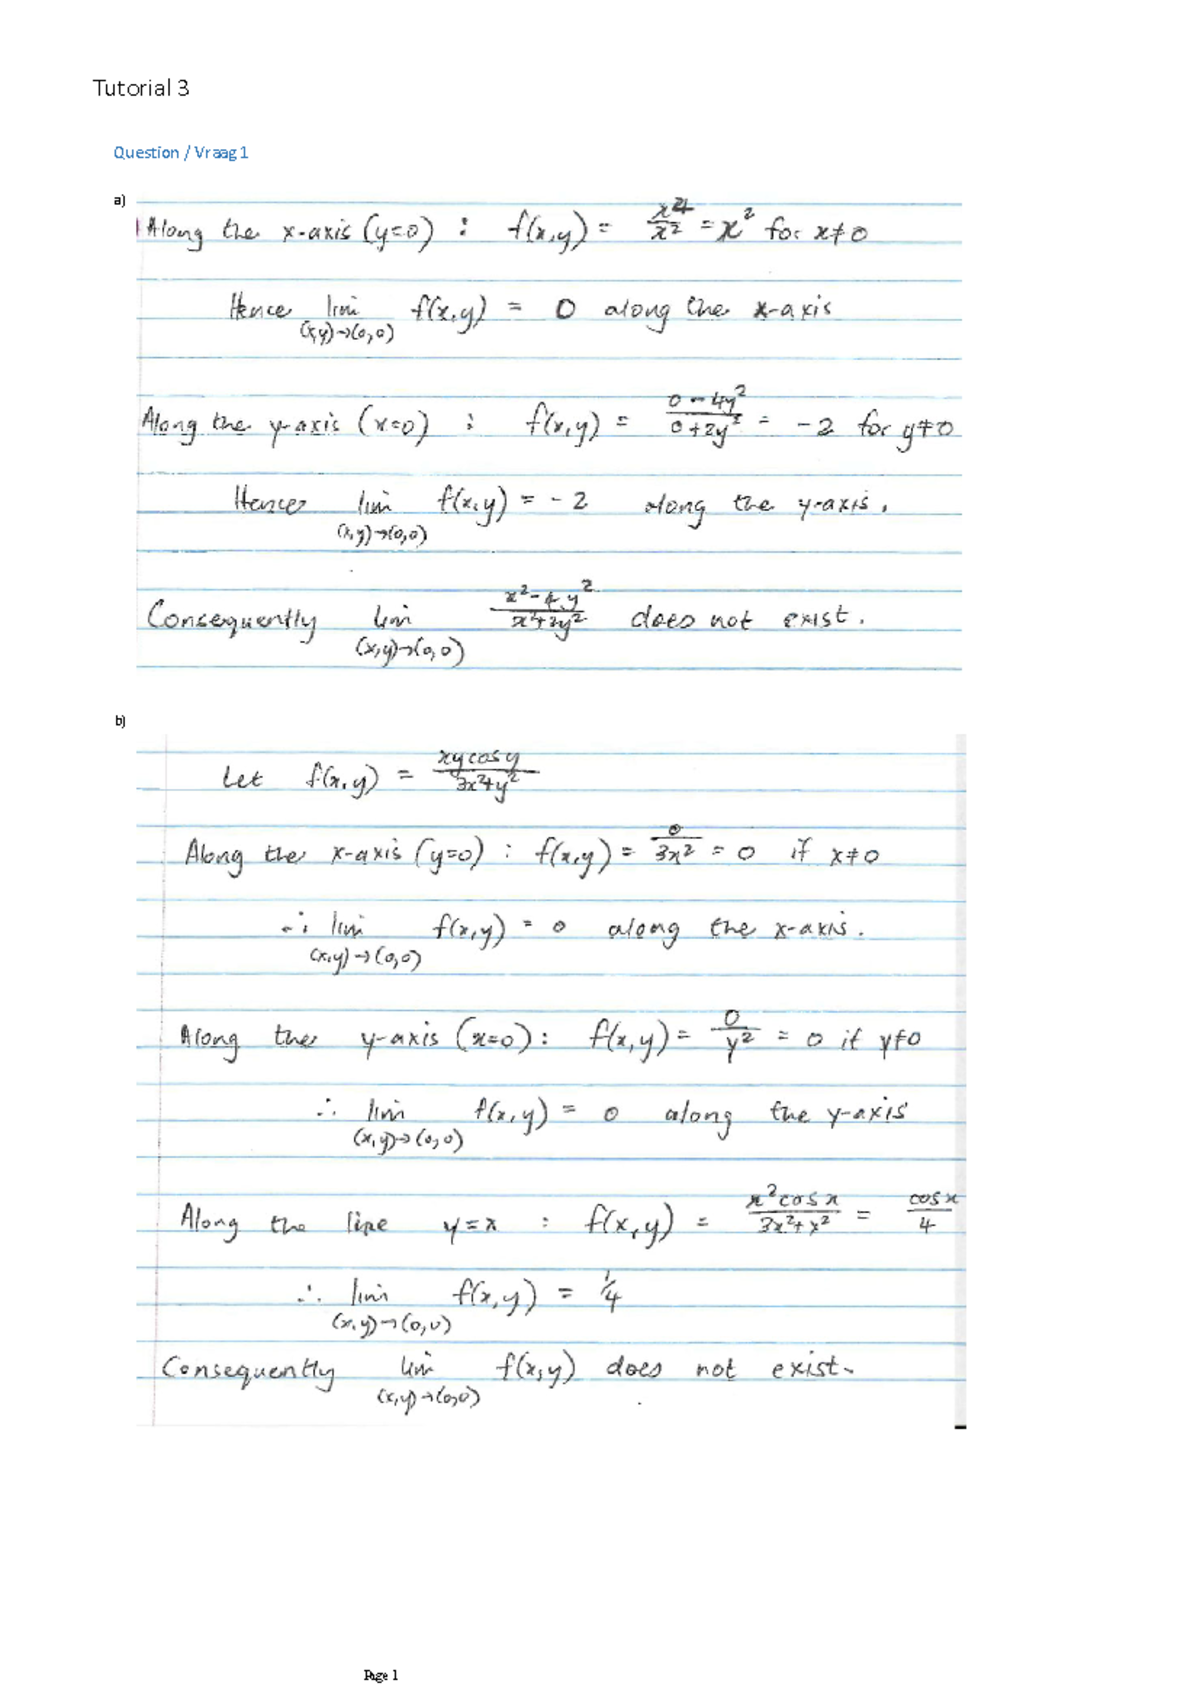 Tutorial 3
Question / Vraag 1
a)
Along the x-axis (y=0) : f(x,y) = x⁴/x² = x² for x≠0
Hence lim f(x,y) = 0 along the x-axis
(x,y)→(0,0)
Along the y-axis (x=0) : f(x,y) = 0-4y²/0+2y² = -2 for y≠0
Hence lim f(x,y) = -2 along the y-axis.
(x,y)→(0,0)
Consequently lim x²-4y²/x²+2y² does not exist.
(x,y)→(0,0)
b)
Let f(x,y) = xy cos y/3x²+y²
Along the x-axis (y=0) : f(x,y) = 0/3x² = 0 if x≠0
∴ lim f(x,y) = 0 along the x-axis.
(x,y)→(0,0)
Along the y-axis (x=0) : f(x,y) = 0/y² = 0 if y≠0
∴ lim f(x,y) = 0 along the y-axis
(x,y)→(0,0)
Along the line y=x : f(x,y) = x² cos x/3x²+x² = cos x/4
∴ lim f(x,y) = 1/4
(x,y)→(0,0)
Consequently lim f(x,y) does not exist.
(x,y)→(0,0)
Page 1